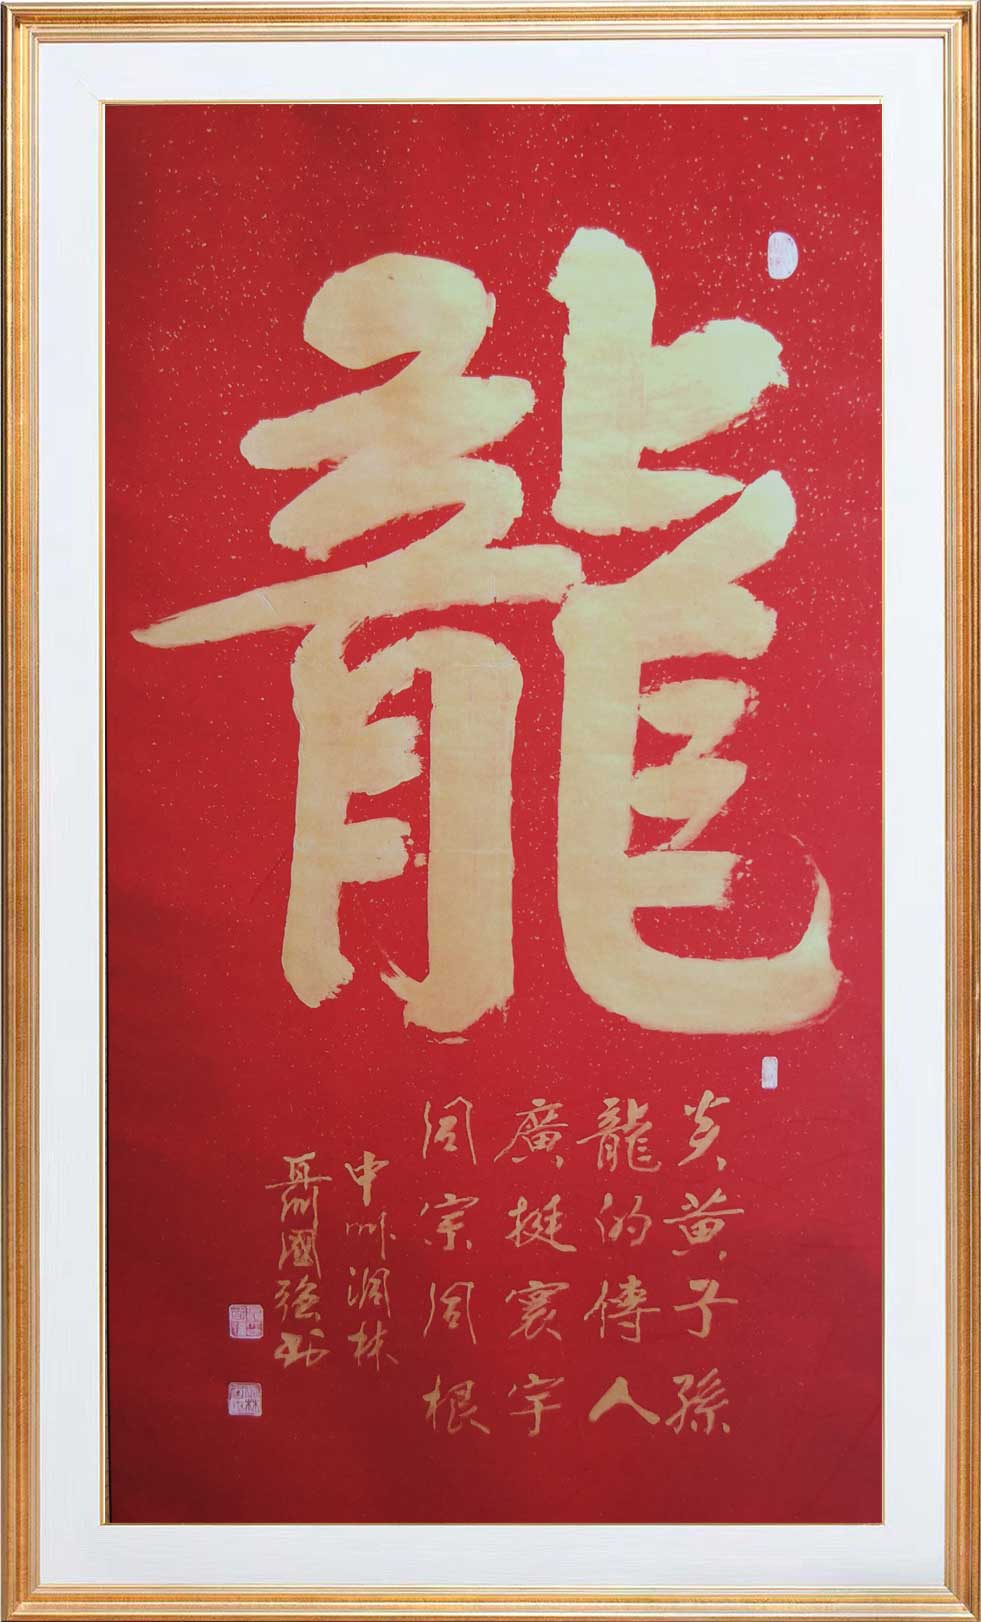 龍
炎黄子孫
龍的傳人
廣挺寰宇
同宗同根
申州润林
聶國强书